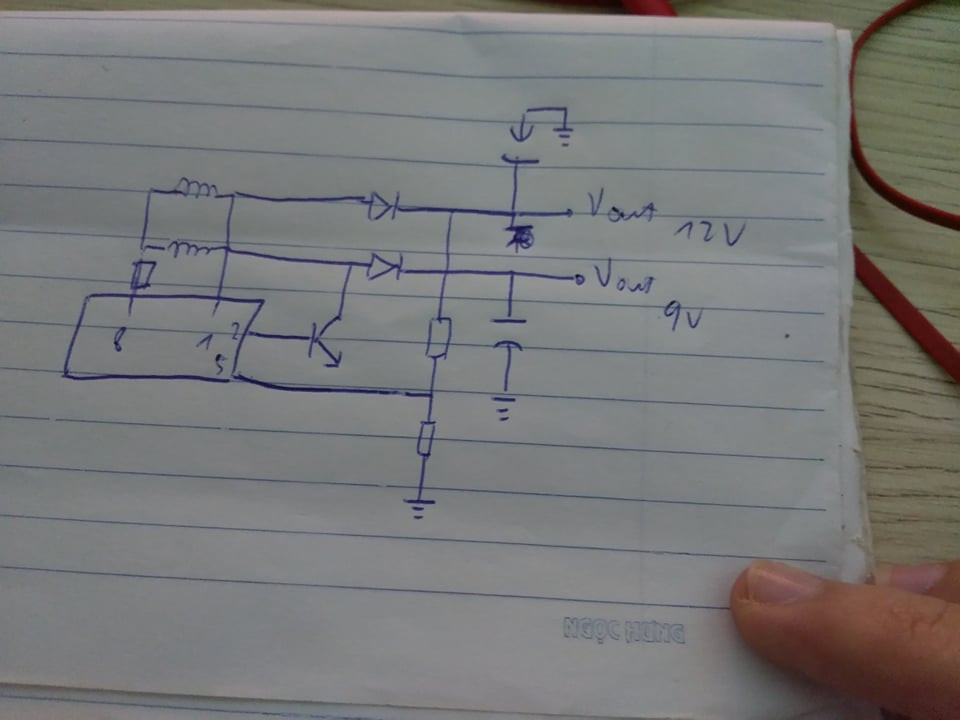 Vout 12V
Vout
9V
8 1 2
5
NGỌC HƯNG